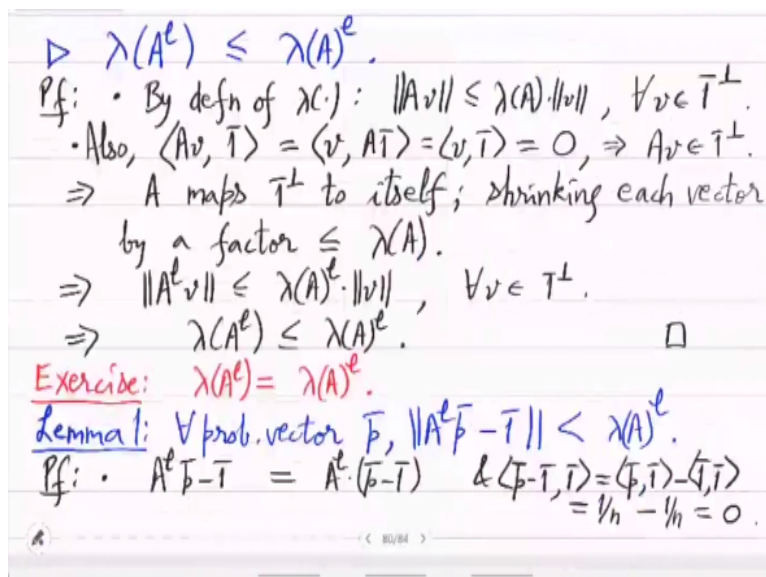 ▷ λ(Aˡ) ≤ λ(A)ˡ.
Pf: · By defn of λ(·): ‖Av‖ ≤ λ(A)·‖v‖, ∀v∈ 1̄^⊥.
· Also, ⟨Av, 1̄⟩ = ⟨v, A1̄⟩ = ⟨v, 1̄⟩ = 0, ⇒ Av ∈ 1̄^⊥.
⇒ A maps 1̄^⊥ to itself; shrinking each vector
by a factor ≤ λ(A).
⇒ ‖Aˡv‖ ≤ λ(A)ˡ·‖v‖, ∀v∈ 1̄^⊥.
⇒ λ(Aˡ) ≤ λ(A)ˡ. □
Exercise: λ(Aˡ) = λ(A)ˡ.
Lemma 1: ∀ prob. vector p̄, ‖Aˡp̄ − 1̄‖ < λ(A)ˡ.
Pf: · Aˡp̄ − 1̄ = Aˡ·(p̄ − 1̄) & ⟨p̄ − 1̄, 1̄⟩ = ⟨p̄, 1̄⟩ − ⟨1̄, 1̄⟩
= 1/n − 1/n = 0.
80/84